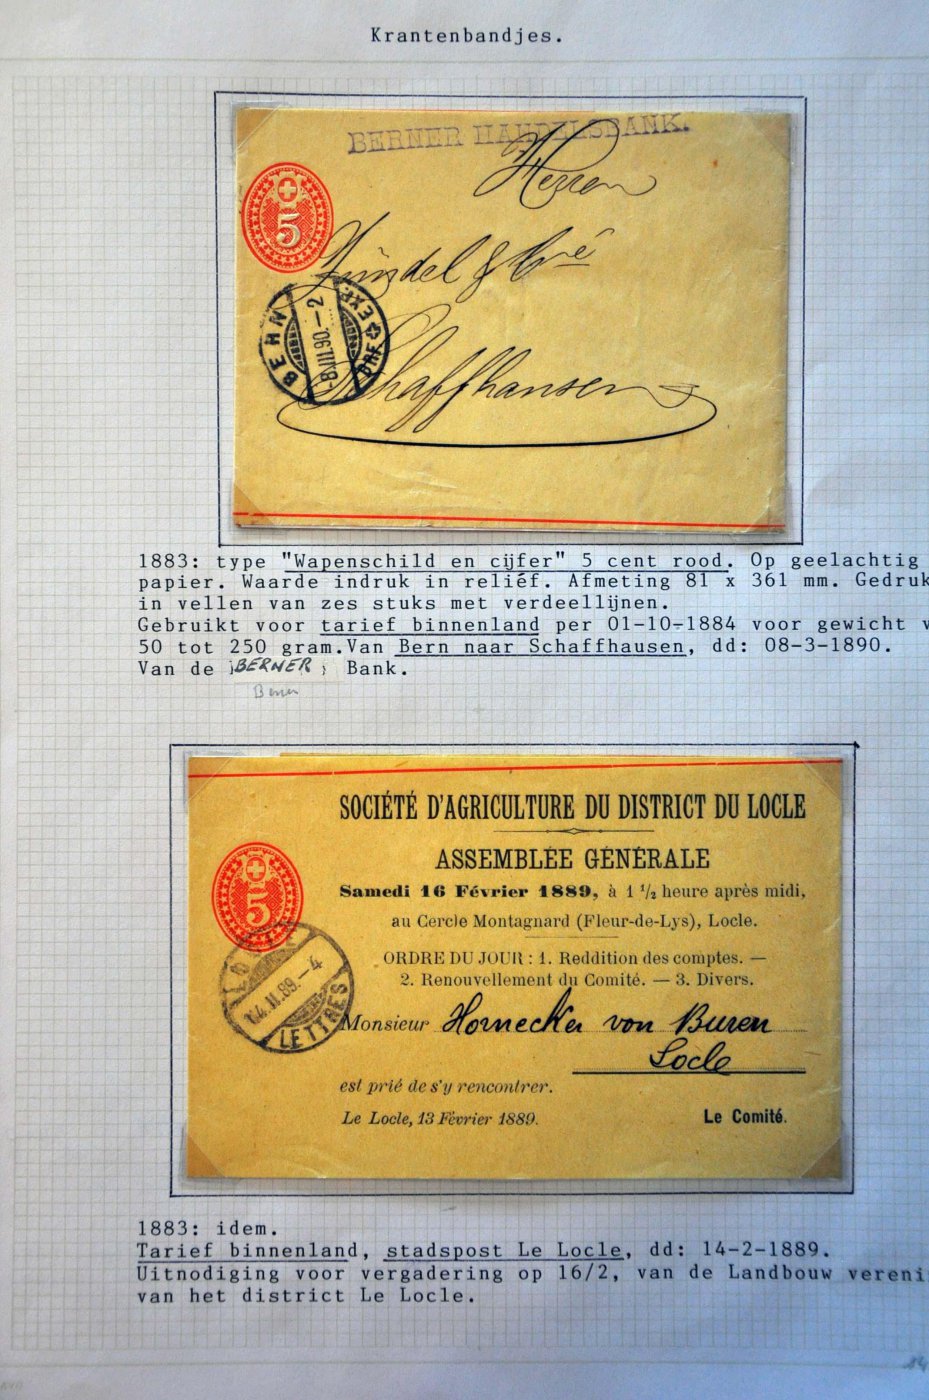 Krantenbandjes.
BERNER HANDELSBANK.
Herren
5
Zündel & Cie
BERN
-8.III.90.-2
BRF. EXP.
Schaffhausen
1883: type "Wapenschild en cijfer" 5 cent rood. Op geelachtig
papier. Waarde indruk in reliéf. Afmeting 81 x 361 mm. Gedruk
in vellen van zes stuks met verdeellijnen.
Gebruikt voor tarief binnenland per 01-10-1884 voor gewicht v
50 tot 250 gram.Van Bern naar Schaffhausen, dd: 08-3-1890.
Van de BERNER Bank.
Berner
SOCIÉTÉ D'AGRICULTURE DU DISTRICT DU LOCLE
ASSEMBLÉE GÉNÉRALE
Samedi 16 Février 1889, à 1 1/2 heure après midi,
au Cercle Montagnard (Fleur-de-Lys), Locle.
5
ORDRE DU JOUR : 1. Reddition des comptes. —
2. Renouvellement du Comité. — 3. Divers.
LOCLE
14.II.89.-4
LETTRES
Monsieur Hornecker von Buren
Locle
est prié de s'y rencontrer.
Le Locle, 13 Février 1889.
Le Comité.
1883: idem.
Tarief binnenland, stadspost Le Locle, dd: 14-2-1889.
Uitnodiging voor vergadering op 16/2, van de Landbouw vereni
van het district Le Locle.